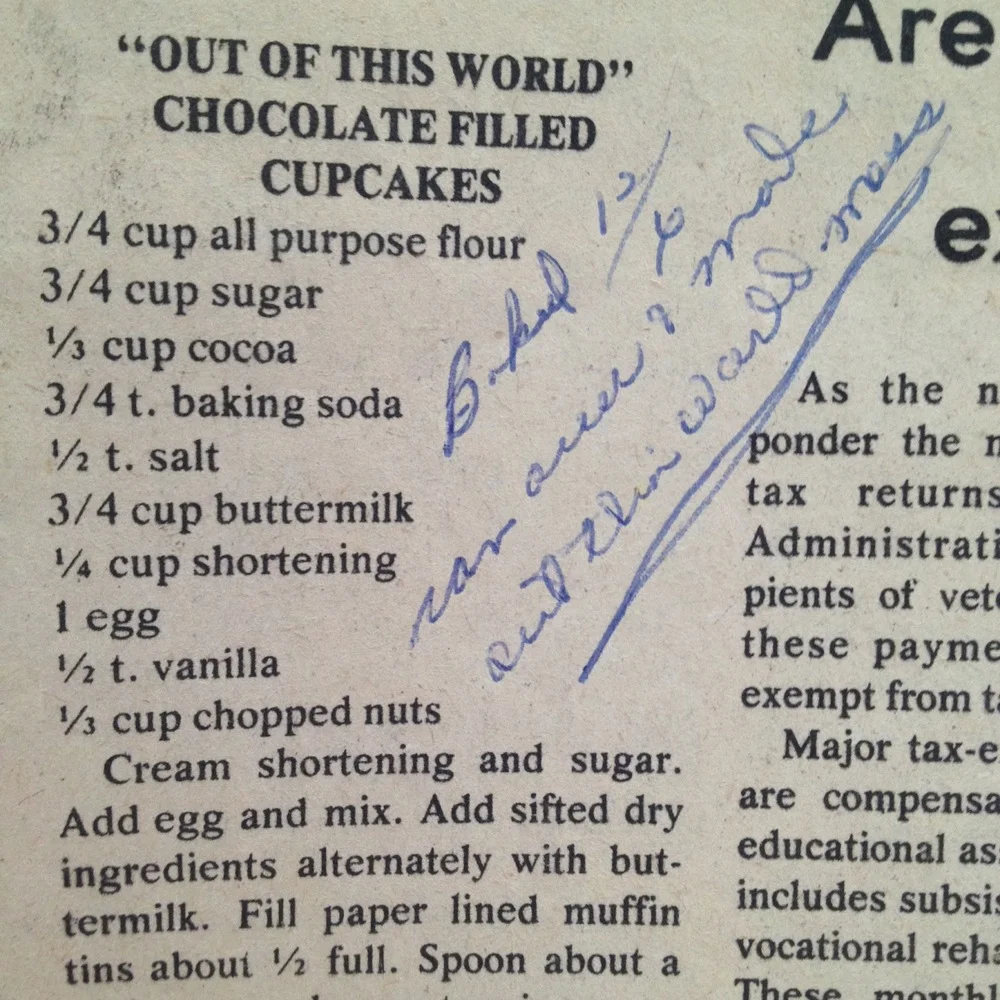 “OUT OF THIS WORLD”
CHOCOLATE FILLED
CUPCAKES
3/4 cup all purpose flour
3/4 cup sugar
⅓ cup cocoa
3/4 t. baking soda
½ t. salt
3/4 cup buttermilk
¼ cup shortening
1 egg
½ t. vanilla
⅓ cup chopped nuts
Cream shortening and sugar.
Add egg and mix. Add sifted dry
ingredients alternately with but-
termilk. Fill paper lined muffin
tins about ½ full. Spoon about a
Baked 12/
ran over & made
world mess
Are
As the n
ponder the n
tax returns
Administrati
pients of vete
these payme
exempt from ta
Major tax-e
are compensa
educational as
includes subsis
vocational reha
These monthl